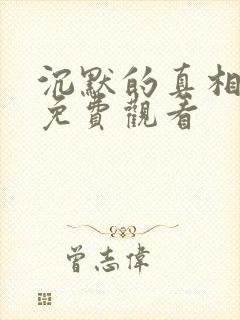 沉默的真相
免費觀看
曾志偉